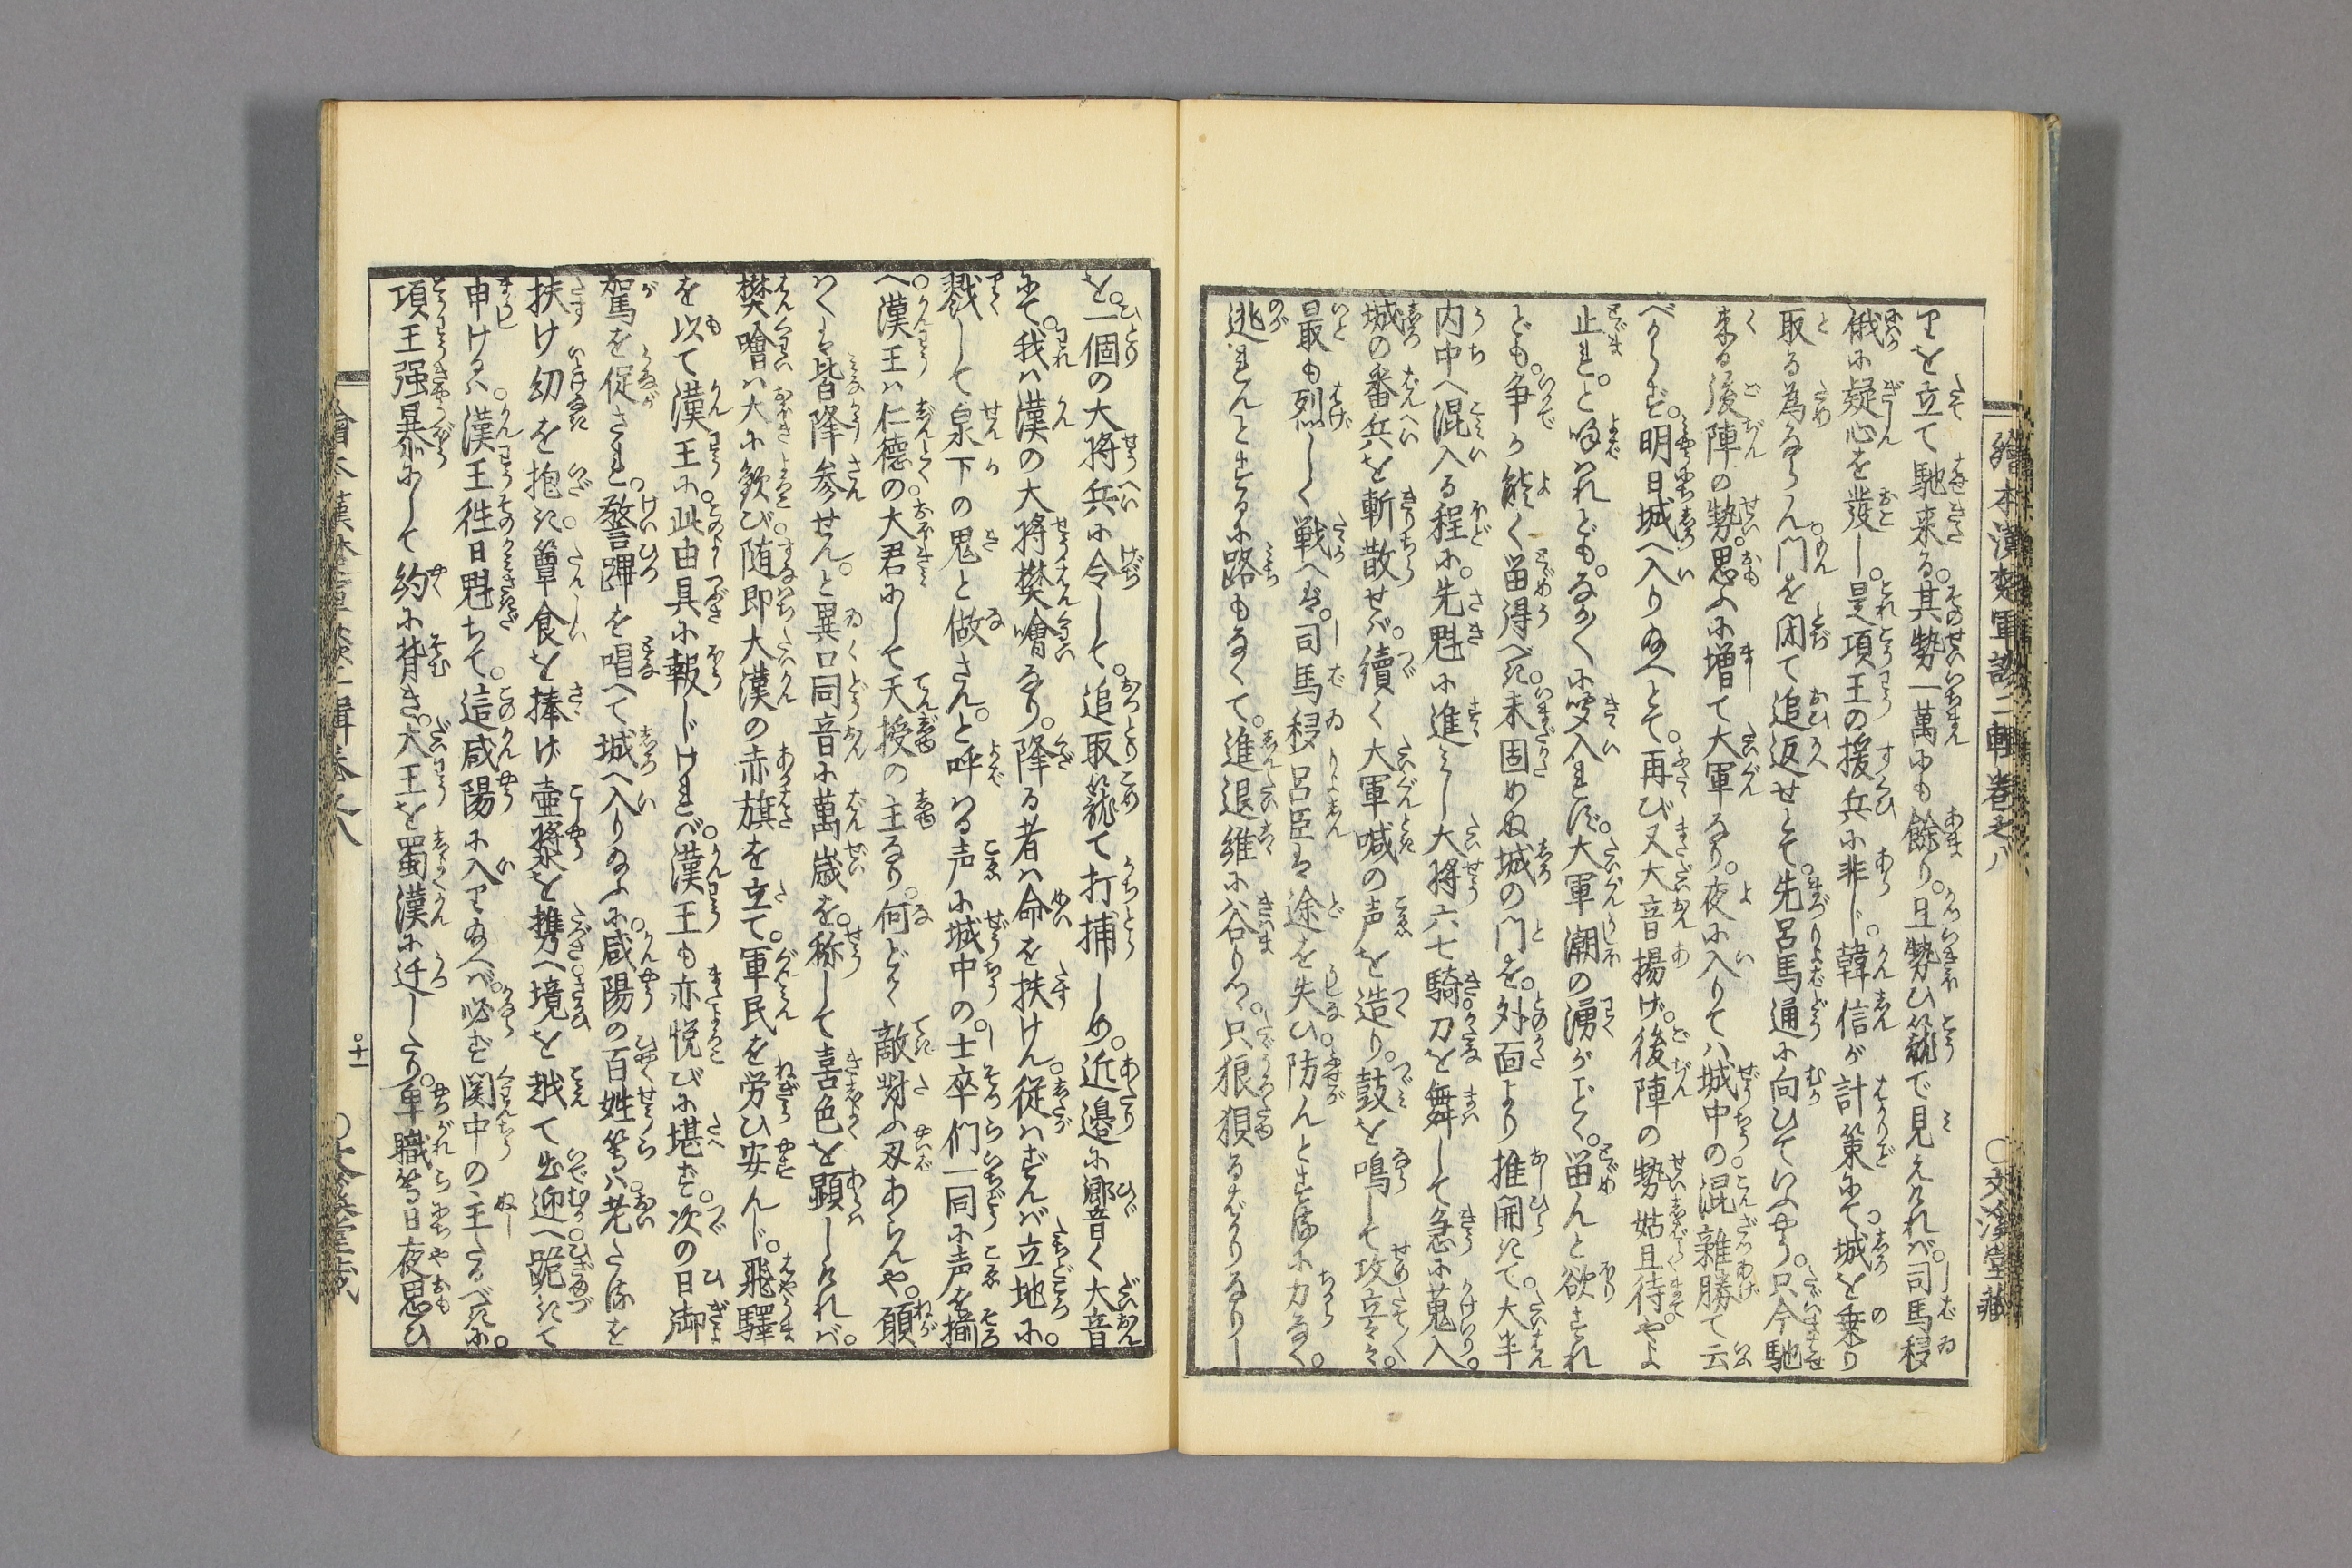 繪本漢楚軍談二輯卷之八
○文溪堂藏
りを立て馳来る。其勢一萬にも餘り。且勢ひ籠で見えけれバ。司馬𣣕
俄に疑心を發し。是項王の援兵に非じ。韓信が計策にて。城を乗り
取る為ならん。門を閉て追返せとて。先呂馬通に向ひていふやう。只今馳
来る後陣の勢。思ふに増て大軍なり。夜に入りてハ城中の。混雜勝て云
べからず。明日城へ入り給へとて。再び又大音揚げ。後陣の勢姑且待やよ
止れ。と呼はれども。なか〱に受入れず。大軍潮の湧がごとく。留んと欲すれ
ども。争か能く留得べき。未固めぬ城の門を。外面より推開きて。大半
内中へ混入る程に。先魁に進みし大将六七騎刀を舞して急に蒐入。
城の番兵を斬散せバ。續く大軍喊の声を造り。鼓を鳴して攻立々々。
最も烈しく戦へバ。司馬𣣕呂臣は途を失ひ。防んとするに力なく。
逃れんとするに路もなくて。進退維に谷りつ。只狼狽るばかりなりし
を。一個の大将兵に令して。追取籠て打捕しめ。近邊に響く大音
にて。我ハ漢の大将樊噲なり。降る者ハ命を扶けん。從はずんバ立地に。
戮して泉下の鬼と做さん。と呼はる声に城中の。士卒們一同に声を揃
へ。漢王ハ仁德の大君にして天授の主なり。何どて敵對ふ刄あらんや。願
はくは皆降参せん。と異口同音に萬歳を。称して喜色を顕しけれバ。
樊噲ハ大に歓び。随即大漢の赤旗を立て。軍民を労ひ安んじ。飛驛
を以て漢王に。此由具に報じければ。漢王も亦悦びに堪ず。次の日御
駕を促され。警蹕を唱へて城へ入り給ふに。咸陽の百姓等ハ。老たるを
扶け幼を抱き。簞食を捧げ壺漿を攜へ。境を越て出迎へ。跪きて
申けるハ。漢王徃日魁ちて。這咸陽に入り給へバ。必ず関中の主たるべきに。
項王强暴にして約に背き。大王を蜀漢に迁したり。卑職等日夜思ひ
繪本漢楚軍談二輯卷之八
○十一
○文溪堂藏